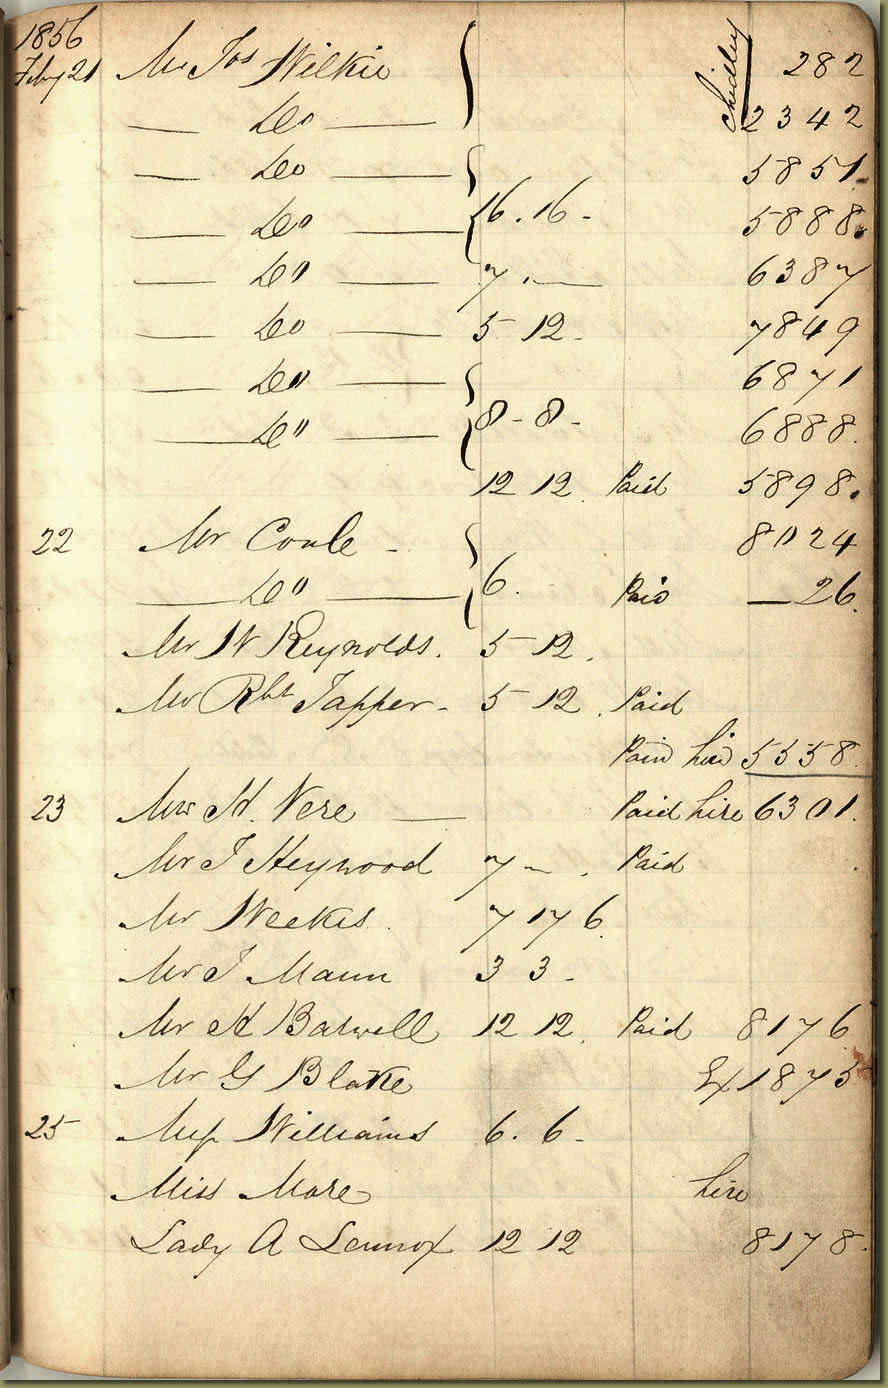 1856
Feby 21 Mr Jos Wilkie Chidley 282
— Do — 2342
— Do — 5851
— Do — 16.16- 5888.
— Do — 7.— 6387
— Do — 5 12- 7849
— Do — 6871
— Do — 8-8- 6888.
12 12 Paid 5898.
22 Mr Coule - 8024
— Do — 6. Paid —26.
Mr W Reynolds. 5 12.
Mr Rbt Tapper- 5 12. Paid
Paid hire 5558.
23 Mr H. Vere — Paid hire 6301.
Mr J Heywood 7 - . Paid
Mr Weekes. 7 17 6.
Mr J Mann 3 3-
Mr H Barwell 12 12. Paid 8176
Mr G Blake Ex 1875
25 Miss Williams 6. 6-
Miss More hire
Lady A Lennox 12 12 8178.